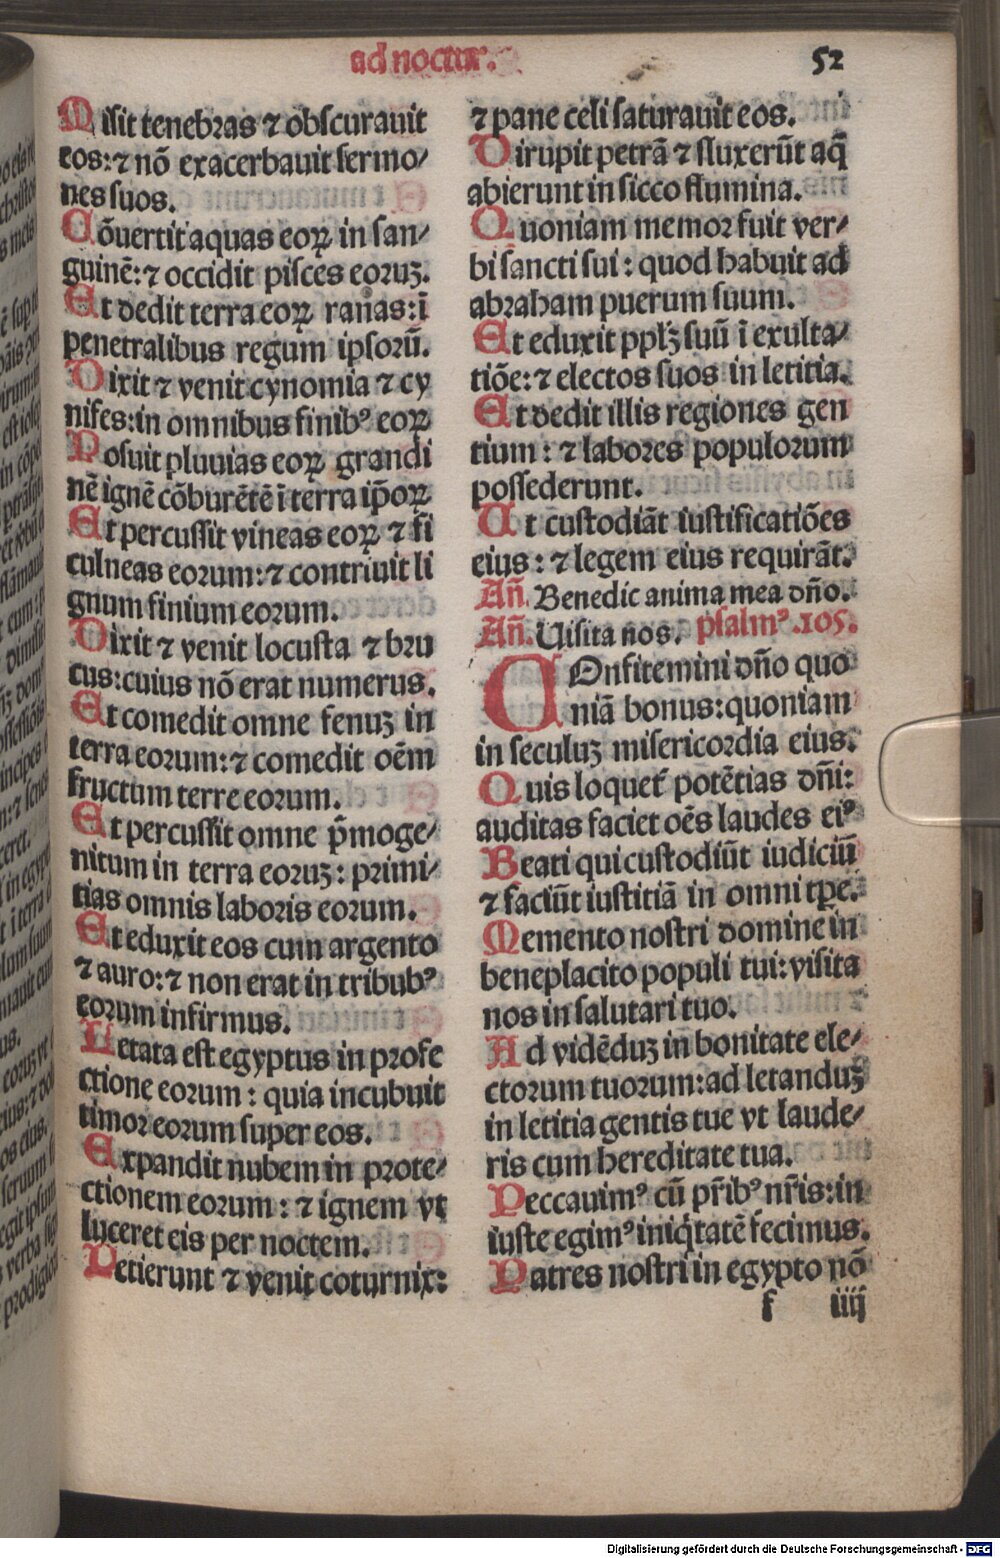 ad noctur.
52
Misit tenebras ⁊ obscurauit
eos:⁊ nō exacerbauit sermo/
nes suos.
Cōuertit aquas eoꝝ in san/
guinē:⁊ occidit pisces eoruꝫ.
Et dedit terra eoꝝ ranas:ī
penetralibus regum ipsorū.
Dixit ⁊ venit cynomia ⁊ cy
nifes:in omnibus finibꝰ eoꝝ
Posuit pluuias eoꝝ grandi
nē ignē cōburētē ī terra ip̄oꝝ
Et percussit vineas eoꝝ ⁊ fi
culneas eorum:⁊ contriuit li
gnum finium eorum.
Dixit ⁊ venit locusta ⁊ bru
cus:cuius nō erat numerus.
Et comedit omne fenuꝫ in
terra eorum:⁊ comedit oēm
fructum terre eorum.
Et percussit omne p̄moge/
nitum in terra eoruꝫ: primi/
tias omnis laboris eorum.
Et eduxit eos cum argento
⁊ auro:⁊ non erat in tribubꝰ
eorum infirmus.
Letata est egyptus in profe
ctione eorum: quia incubuit
timor eorum super eos.
Expandit nubem in prote/
ctionem eorum: ⁊ ignem vt
luceret eis per noctem.
Petierunt ⁊ venit coturnix:
⁊ pane celi saturauit eos.
Dirupit petrā ⁊ fluxerūt aq̄
abierunt in sicco flumina.
Quoniam memor fuit ver/
bi sancti sui: quod habuit ad
abraham puerum suum.
Et eduxit pplꝫ suū ī exulta/
tiōe:⁊ electos suos in letitia.
Et dedit illis regiones gen
tium: ⁊ labores populorum
possederunt.
Ut custodiāt iustificatiōes
eius: ⁊ legem eius requirāt.
An̄. Benedic anima mea dn̄o.
An̄. Uisita nos. psalmꝰ .105.
COnfitemini dn̄o quo
niā bonus:quoniam
in seculuꝫ misericordia eius.
Quis loquet᷑ potētias dn̄i:
auditas faciet oēs laudes eiꝰ
Beati qui custodiūt iudiciū
⁊ faciūt iustitiā in omni tp̄e.
Memento nostri domine in
beneplacito populi tui:visita
nos in salutari tuo.
Ad vidēduꝫ in bonitate ele/
ctorum tuorum:ad letanduꝫ
in letitia gentis tue vt laude/
ris cum hereditate tua.
Peccauimꝰ cū pr̄ibꝰ nr̄is:in
iuste egimꝰ iniq̇tatē fecimus.
Patres nostri in egypto nō
f iiij
Digitalisierung gefördert durch die Deutsche Forschungsgemeinschaft - DFG